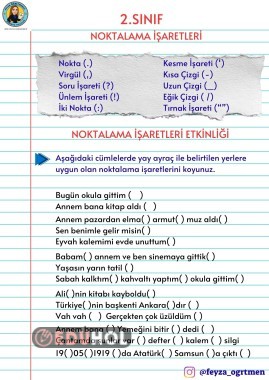 2.SINIF
NOKTALAMA İŞARETLERİ
Nokta (.)
Virgül (,)
Soru İşareti (?)
Ünlem İşareti (!)
İki Nokta (:)
Kesme İşareti (')
Kısa Çizgi (-)
Uzun Çizgi (_)
Eğik Çizgi ( /)
Tırnak İşareti ("")
NOKTALAMA İŞARETLERİ ETKİNLİĞİ
Aşağıdaki cümlelerde yay ayraç ile belirtilen yerlere
uygun olan noktalama işaretlerini koyunuz.
Bugün okula gittim (   )
Annem bana kitap aldı (   )
Annem pazardan elma( ) armut( ) muz aldı( )
Sen benimle gelir misin( )
Eyvah kalemimi evde unuttum( )
Babam( ) annem ve ben sinemaya gittik( )
Yaşasın yarın tatil (   )
Sabah kalktım( ) kahvaltı yaptım( ) okula gittim( )
Ali( )nin kitabı kayboldu( )
Türkiye( )nin başkenti Ankara( )dır (   )
Vah vah (   )  Gerçekten çok üzüldüm ( )
Annem bana ( ) Yemeğini bitir ( ) dedi (   )
Çantamda şunlar var ( ) defter (   ) kalem (   ) silgi
19( )05( )1919 ( )da Atatürk( ) Samsun ( )a çıktı (   )
EDUHOL
@feyza_ogrtmen